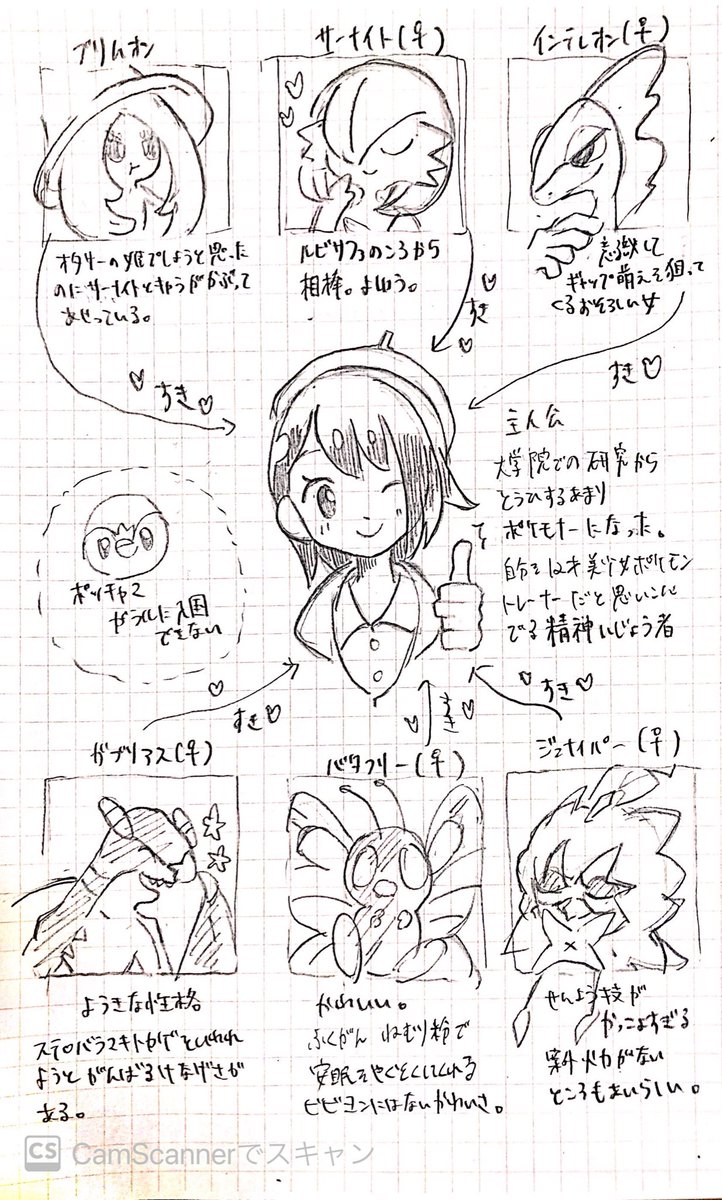 ブリムオン
サーナイト(♀)
インテレオン(♀)
オタサーの姫でしようと思った
のにサーナイトとキャラがかぶって
あせっている。
ルビサファのころから
相棒。よしゅう。
意識して
ギャップ萌えを狙って
くるおそろしい女
すき
すき
すき
主人公
大学院での研究から
とうひするあまり
ポケモナーになった。
自分を12才美少女ポケモン
トレーナーだと思いこん
でる精神いじょう者
ポッチャマ
ガラルに入国
できない
すき
すき
すき
ガブリアス(♀)
バタフリー(♀)
ジュナイパー(♀)
ようきな性格
ステロバラマキトカゲといわれ
ようとがんばるけなげさが
ある。
かわいい。
ふくがん ねむり粉で
安眠をやくそくしてくれる
ビビヨンにはないかわいさ。
せんよう技が
かっこよすぎる
案外火力がない
ところもあいらしい。
CS CamScannerでスキャン